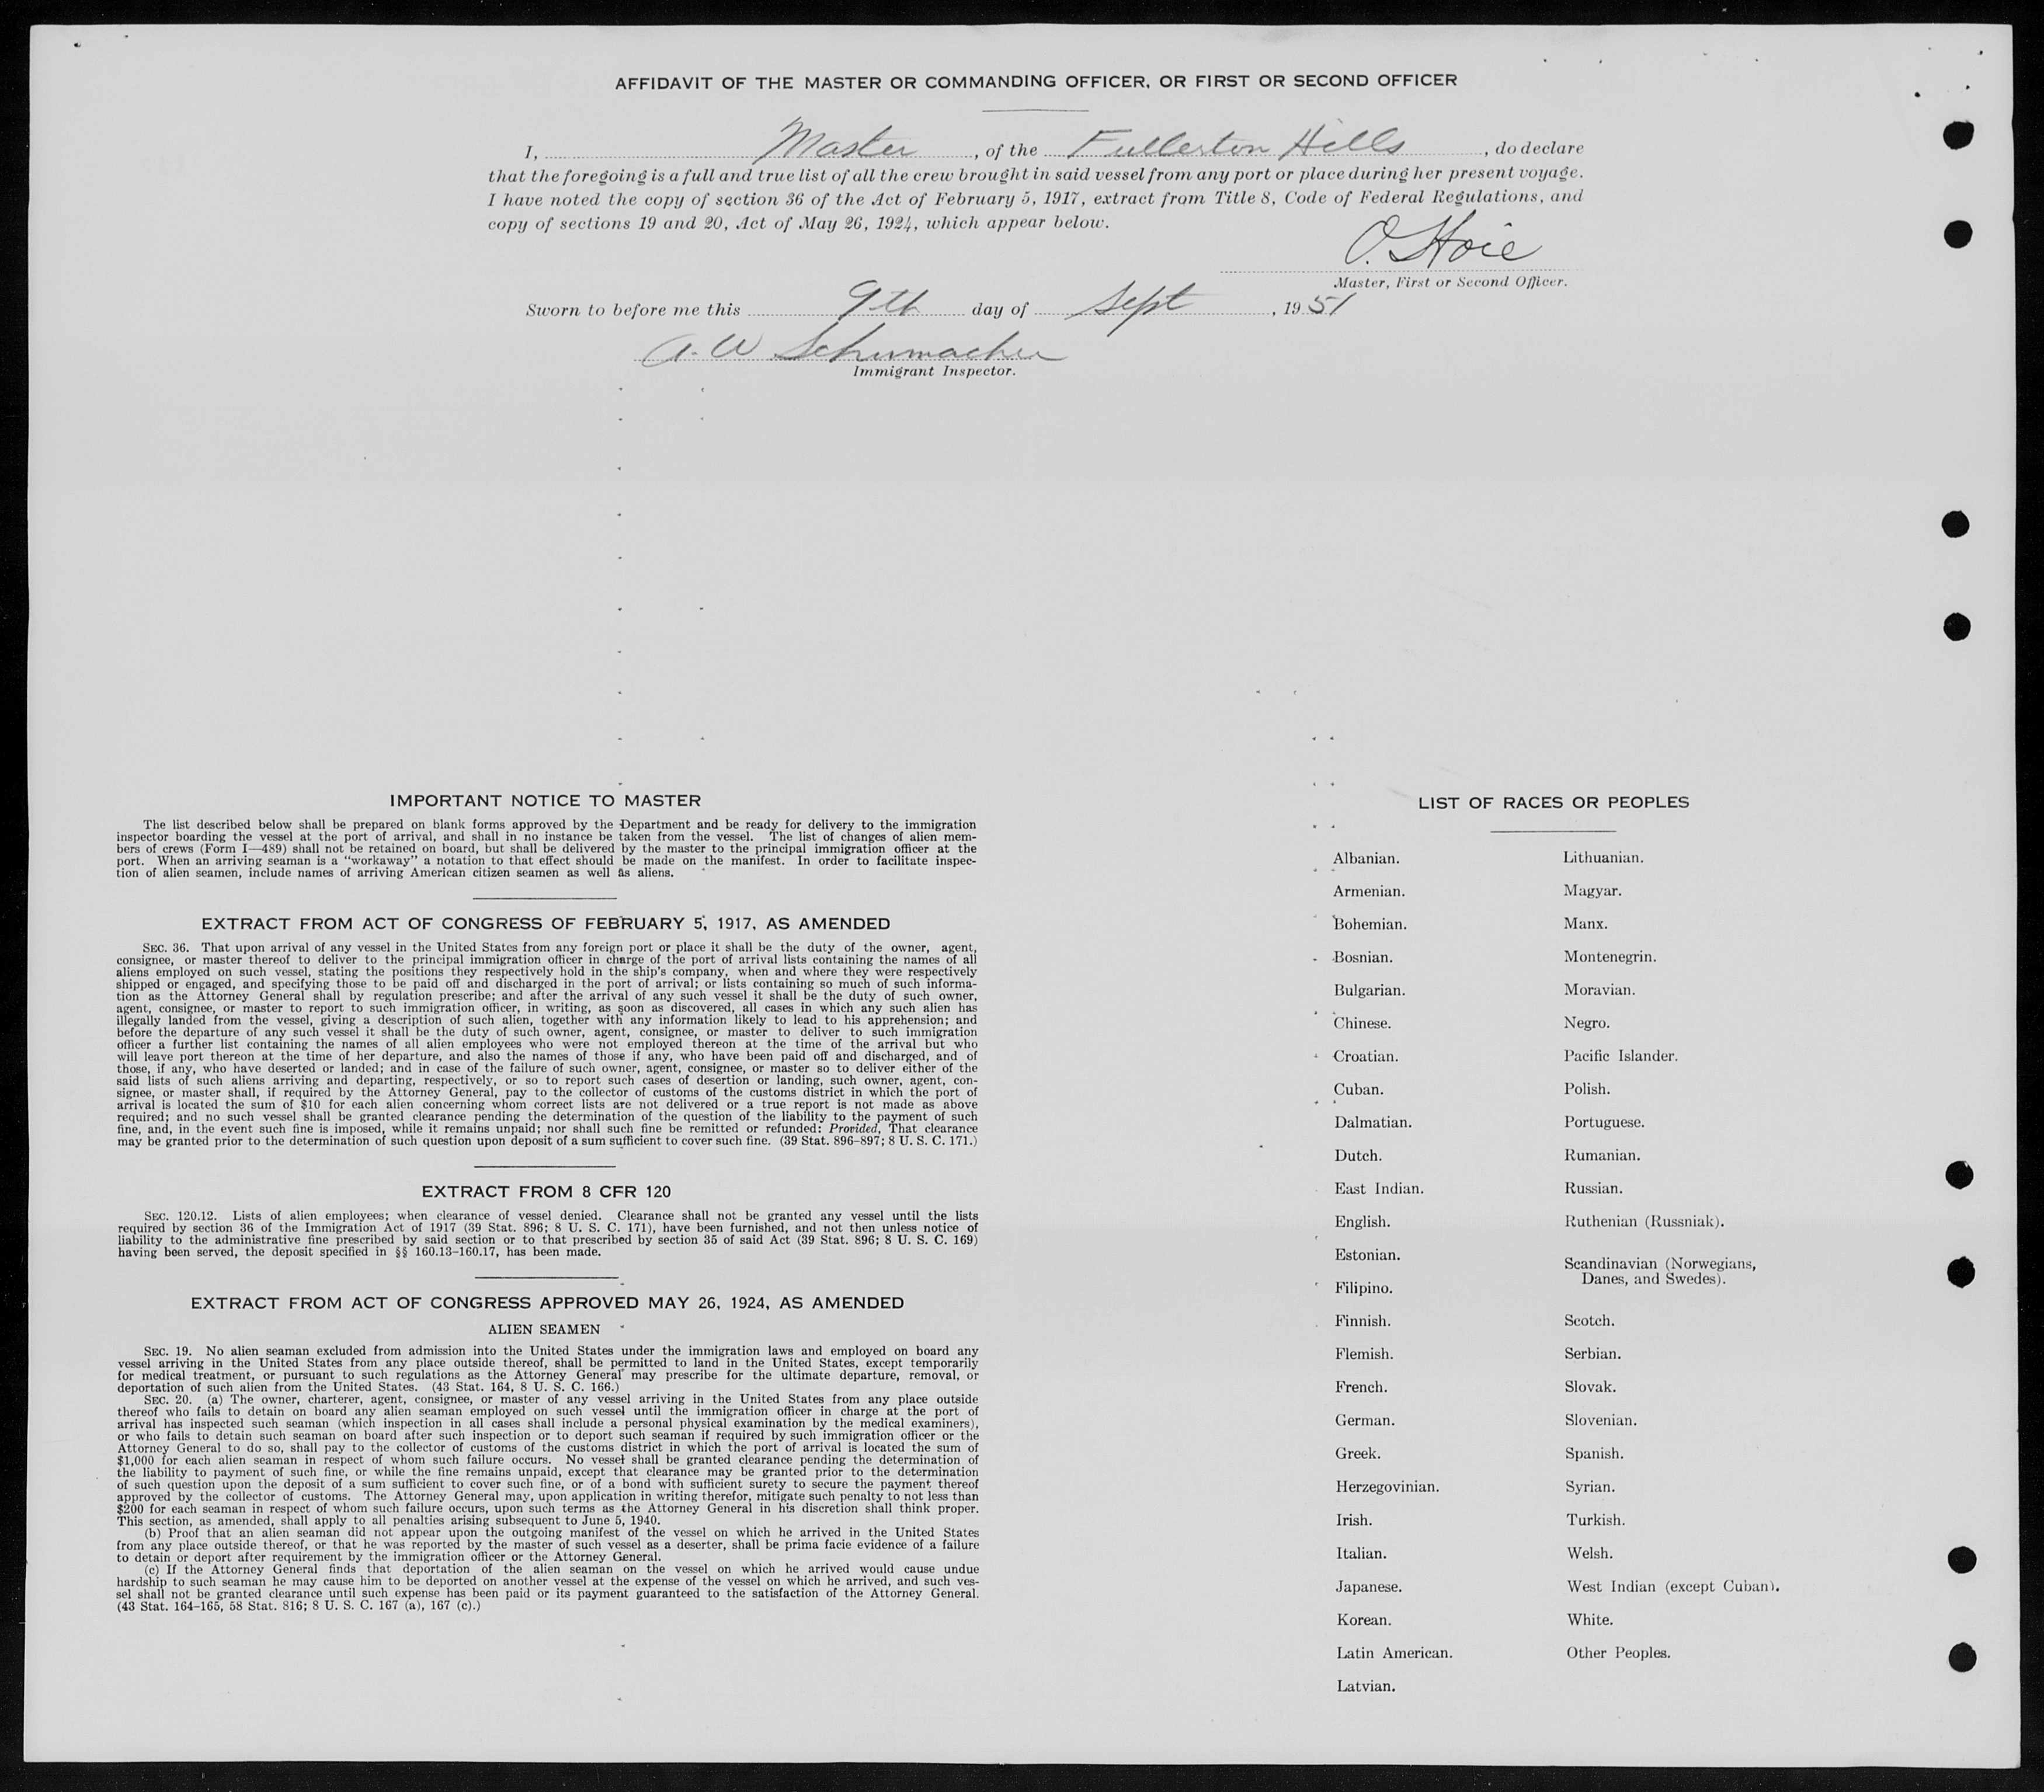 AFFIDAVIT OF THE MASTER OR COMMANDING OFFICER, OR FIRST OR SECOND OFFICER
I, Master, of the Fullerton Hills, do declare
that the foregoing is a full and true list of all the crew brought in said vessel from any port or place during her present voyage.
I have noted the copy of section 36 of the Act of February 5, 1917, extract from Title 8, Code of Federal Regulations, and
copy of sections 19 and 20, Act of May 26, 1924, which appear below.
O. Hoie
Master, First or Second Officer.
Sworn to before me this 9th day of Sept, 1951
A. W Schumacher
Immigrant Inspector.
IMPORTANT NOTICE TO MASTER
The list described below shall be prepared on blank forms approved by the Department and be ready for delivery to the immigration
inspector boarding the vessel at the port of arrival, and shall in no instance be taken from the vessel. The list of changes of alien mem-
bers of crews (Form I—489) shall not be retained on board, but shall be delivered by the master to the principal immigration officer at the
port. When an arriving seaman is a "workaway" a notation to that effect should be made on the manifest. In order to facilitate inspec-
tion of alien seamen, include names of arriving American citizen seamen as well as aliens.
EXTRACT FROM ACT OF CONGRESS OF FEBRUARY 5, 1917, AS AMENDED
SEC. 36. That upon arrival of any vessel in the United States from any foreign port or place it shall be the duty of the owner, agent,
consignee, or master thereof to deliver to the principal immigration officer in charge of the port of arrival lists containing the names of all
aliens employed on such vessel, stating the positions they respectively hold in the ship's company, when and where they were respectively
shipped or engaged, and specifying those to be paid off and discharged in the port of arrival; or lists containing so much of such informa-
tion as the Attorney General shall by regulation prescribe; and after the arrival of any such vessel it shall be the duty of such owner,
agent, consignee, or master to report to such immigration officer, in writing, as soon as discovered, all cases in which any such alien has
illegally landed from the vessel, giving a description of such alien, together with any information likely to lead to his apprehension; and
before the departure of any such vessel it shall be the duty of such owner, agent, consignee, or master to deliver to such immigration
officer a further list containing the names of all alien employees who were not employed thereon at the time of the arrival but who
will leave port thereon at the time of her departure, and also the names of those if any, who have been paid off and discharged, and of
those, if any, who have deserted or landed; and in case of the failure of such owner, agent, consignee, or master so to deliver either of the
said lists of such aliens arriving and departing, respectively, or so to report such cases of desertion or landing, such owner, agent, con-
signee, or master shall, if required by the Attorney General, pay to the collector of customs of the customs district in which the port of
arrival is located the sum of $10 for each alien concerning whom correct lists are not delivered or a true report is not made as above
required; and no such vessel shall be granted clearance pending the determination of the question of the liability to the payment of such
fine, and, in the event such fine is imposed, while it remains unpaid; nor shall such fine be remitted or refunded: Provided, That clearance
may be granted prior to the determination of such question upon deposit of a sum sufficient to cover such fine. (39 Stat. 896–897; 8 U. S. C. 171.)
EXTRACT FROM 8 CFR 120
SEC. 120.12. Lists of alien employees; when clearance of vessel denied. Clearance shall not be granted any vessel until the lists
required by section 36 of the Immigration Act of 1917 (39 Stat. 896; 8 U. S. C. 171), have been furnished, and not then unless notice of
liability to the administrative fine prescribed by said section or to that prescribed by section 35 of said Act (39 Stat. 896; 8 U. S. C. 169)
having been served, the deposit specified in §§ 160.13–160.17, has been made.
EXTRACT FROM ACT OF CONGRESS APPROVED MAY 26, 1924, AS AMENDED
ALIEN SEAMEN
SEC. 19. No alien seaman excluded from admission into the United States under the immigration laws and employed on board any
vessel arriving in the United States from any place outside thereof, shall be permitted to land in the United States, except temporarily
for medical treatment, or pursuant to such regulations as the Attorney General may prescribe for the ultimate departure, removal, or
deportation of such alien from the United States. (43 Stat. 164, 8 U. S. C. 166.)
SEC. 20. (a) The owner, charterer, agent, consignee, or master of any vessel arriving in the United States from any place outside
thereof who fails to detain on board any alien seaman employed on such vessel until the immigration officer in charge at the port of
arrival has inspected such seaman (which inspection in all cases shall include a personal physical examination by the medical examiners),
or who fails to detain such seaman on board after such inspection or to deport such seaman if required by such immigration officer or the
Attorney General to do so, shall pay to the collector of customs of the customs district in which the port of arrival is located the sum of
$1,000 for each alien seaman in respect of whom such failure occurs. No vessel shall be granted clearance pending the determination of
the liability to payment of such fine, or while the fine remains unpaid, except that clearance may be granted prior to the determination
of such question upon the deposit of a sum sufficient to cover such fine, or of a bond with sufficient surety to secure the payment thereof
approved by the collector of customs. The Attorney General may, upon application in writing therefor, mitigate such penalty to not less than
$200 for each seaman in respect of whom such failure occurs, upon such terms as the Attorney General in his discretion shall think proper.
This section, as amended, shall apply to all penalties arising subsequent to June 5, 1940.
(b) Proof that an alien seaman did not appear upon the outgoing manifest of the vessel on which he arrived in the United States
from any place outside thereof, or that he was reported by the master of such vessel as a deserter, shall be prima facie evidence of a failure
to detain or deport after requirement by the immigration officer or the Attorney General.
(c) If the Attorney General finds that deportation of the alien seaman on the vessel on which he arrived would cause undue
hardship to such seaman he may cause him to be deported on another vessel at the expense of the vessel on which he arrived, and such ves-
sel shall not be granted clearance until such expense has been paid or its payment guaranteed to the satisfaction of the Attorney General.
(43 Stat. 164–165, 58 Stat. 816; 8 U. S. C. 167 (a), 167 (c).)
LIST OF RACES OR PEOPLES
Albanian.
Armenian.
Bohemian.
Bosnian.
Bulgarian.
Chinese.
Croatian.
Cuban.
Dalmatian.
Dutch.
East Indian.
English.
Estonian.
Filipino.
Finnish.
Flemish.
French.
German.
Greek.
Herzegovinian.
Irish.
Italian.
Japanese.
Korean.
Latin American.
Latvian.
Lithuanian.
Magyar.
Manx.
Montenegrin.
Moravian.
Negro.
Pacific Islander.
Polish.
Portuguese.
Rumanian.
Russian.
Ruthenian (Russniak).
Scandinavian (Norwegians,
Danes, and Swedes).
Scotch.
Serbian.
Slovak.
Slovenian.
Spanish.
Syrian.
Turkish.
Welsh.
West Indian (except Cuban).
White.
Other Peoples.